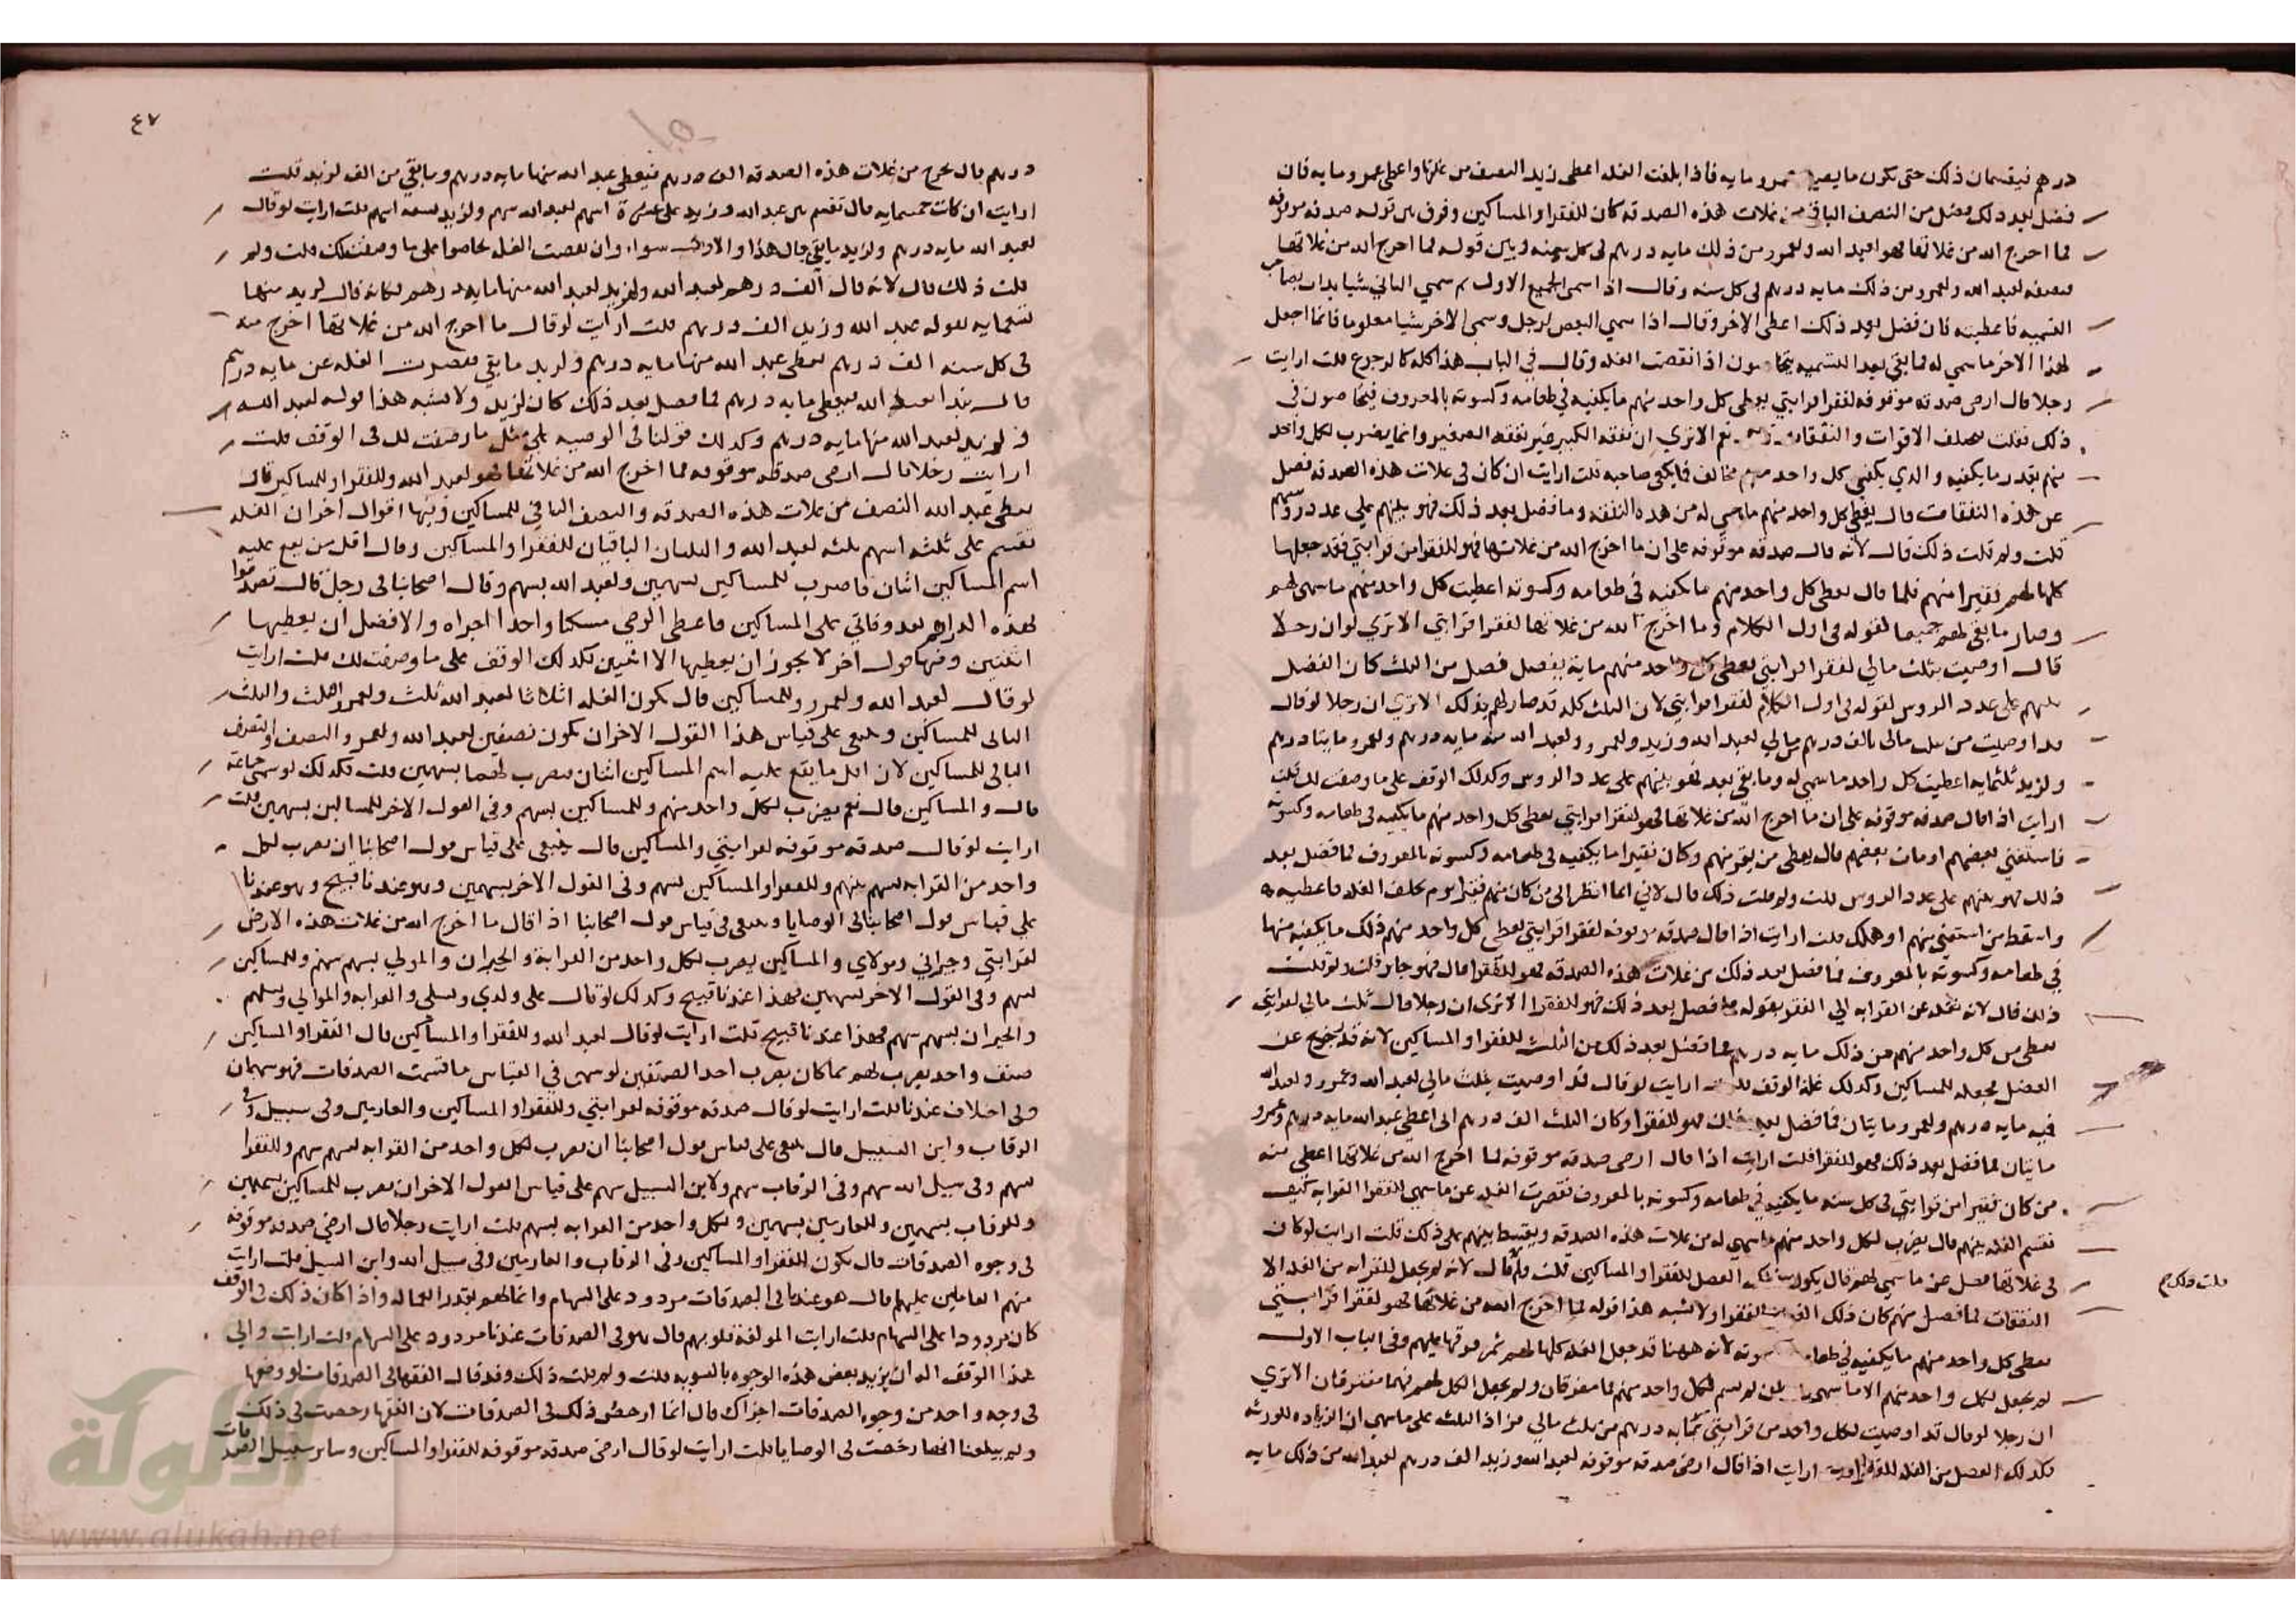 درهم فيقسمان ذلك حتى يكون ما يصير لعمرو مايه فاذا بلغت الغله اعطى زيد النصف من غلتها واعطى عمرو مايه فان
فضل بعد ذلك فضل من النصف الباقي من غلات هذه الصدقه كان للفقرا والمساكين وفرق بين قوله صدقه موقوفه
فما اخرج الله من غلاتها فهو لعبد الله ولعمرو من ذلك مايه درهم في كل سنه وبين قوله فما اخرج الله من غلاتها
نصفه لعبد الله ولعمرو من ذلك مايه درهم في كل سنه وقال اذا سمى الجميع الاول ثم سمي الثاني شيا بدات بصاحب
القسميه فاعطيته فان فضل بعد ذلك اعطى الاخر وقال اذا سمي البعض لرجل وسمي الاخر شيا معلوما فانما اجعل
لهذا الاخر ما سمي له مما بقي بعد التسميه يتحاصون اذا نقصت الغله وقال في الباب هذا كله كالرجوع قلت ارايت
رجلا قال ارضى صدقه موقوفه لفقرا قرابتي يعطى كل واحد منهم ما يكفيه في طعامه وكسوته بالمعروف فيتحاصون في
ذلك فقلت يختلف الاقوات والنفقات قال نعم الا ترى ان نفقه الكبير غير نفقه الصغير وانما يضرب لكل واحد
منهم بقدر ما يكفيه والذي يكفي كل واحد منهم مخالف لما يكفي صاحبه قلت ارايت ان كان في غلات هذه الصدقه فضل
عن هذه النفقات قال يعطى كل واحد منهم ما سمي له من هذه النفقه وما فضل بعد ذلك فهو بينهم على عدد روسهم
قلت ولم قلت ذلك قال لانه قال صدقه موقوفه على ان ما اخرج الله من غلاتها فهو للفقرا من قرابتي فقد جعلها
كلها لهم فقيرا منهم فلما قال يعطى كل واحد منهم ما يكفيه في طعامه وكسوته اعطيت كل واحد منهم ما سمى لهم
وصار ما بقي لهم جميعا لقوله في اول الكلام وما اخرج الله من غلاتها لفقرا قرابتي الا ترى لو ان رجلا
قال اوصيت بثلث مالي لفقرا قرابتي يعطى كل واحد منهم مايه ففضل فضل من الثلث كان الفضل
بينهم على عدد الروس لقوله في اول الكلام لفقرا قرابتي لان الثلث كله قد صار لهم بذلك الا ترى ان رجلا لو قال
قد اوصيت من ثلث مالى بالف درهم من مالي لعبد الله وزيد ولعمرو ولعبد الله منه مايه درهم ولعمرو مايتا درهم
ولزيد ثلثمايه اعطيت كل واحد ما سمي له وما بقي بعد فهو بينهم على عدد الروس وكذلك الوقف على ما وصفت لك قلت
ارايت اذا قال صدقه موقوفه على ان ما اخرج الله من غلاتها فهو لفقرا قرابتي يعطى كل واحد منهم ما يكفيه في طعامه وكسوته
فاستغنى بعضهم او مات بعضهم قال يعطى من بقي منهم وكان فقيرا ما يكفيه في طعامه وكسوته بالمعروف فما فضل بعد
ذلك فهو بينهم على عدد الروس قلت ولم قلت ذلك قال لاني انما انظر الى من كان منهم فقيرا يوم تخلف الغله فاعطيه
واسقط من استغنى منهم او هلك قلت ارايت اذا قال صدقه موقوفه لفقرا قرابتي يعطى كل واحد منهم ذلك ما يكفيه منها
في طعامه وكسوته بالمعروف فما فضل بعد ذلك من غلات هذه الصدقه فهو للفقرا قال فهو جايز قلت ولم قلت
ذلك قال لانه نقله عن القرابه الي الفقر بقوله فما فضل بعد ذلك فهو للفقرا الا ترى ان رجلا قال ثلث مالي لقرابتي
يعطى من كل واحد منهم من ذلك مايه درهم فما فضل بعد ذلك من الثلث للفقرا والمساكين لانه قد يخرج عن
الفضل فجعله للمساكين وكذلك غلة الوقف قلت ارايت لو قال قد اوصيت بثلث مالي لعبد الله وعمرو ولعبد الله
فيه مايه درهم ولعمرو مايتان فما فضل بعد ذلك فهو للفقرا وكان الثلث الف درهم الى اعطي عبد الله مايه درهم وعمرو
مايتان فما فضل بعد ذلك فهو للفقرا قلت ارايت اذا قال ارضى صدقه موقوفه لما اخرج الله من غلاتها اعطى منه
من كان فقيرا من قرابتي في كل سنه ما يكفيه في طعامه وكسوته بالمعروف فقصرت الغله عن ما سمي لفقرا القرابه كيف
تقسم الغله بينهم قال يضرب لكل واحد منهم ما سمي له من غلات هذه الصدقه ويقسط بينهم على ذلك قلت ارايت لو كان
في غلاتها فضل عن ما سمي لهم قال يكون ذلك الفضل للفقرا والمساكين قلت ولم قال لانه لم يجعل للقرابه من الغله الا
النفقات فما فضل منهم كان ذلك الفضل للفقرا ولا يشبه هذا قوله لما اخرج الله من غلاتها فهو لفقرا قرابتي
يعطى كل واحد منهم ما يكفيه في طعامه وكسوته لانه ههنا قد جعل الغله كلها لهم ثم فرقها عليهم وفي الباب الاول
لم يجعل لكل واحد منهم الا ما سمى له ولم يجعل الكل لهم فهما مفترقان الا ترى
ان رجلا لو قال قد اوصيت لكل واحد من قرابتي بمايه درهم من ثلث مالي فزاد الثلث على ما سمي ان الزياده للورثه
فكذلك الفضل من الغله للفقرا قلت ارايت اذا قال ارضى صدقه موقوفه لعبد الله وزيد الف درهم لعبد الله من ذلك مايه
قلت ولم
٤٧
درهم قال يخرج من غلات هذه الصدقه الف درهم فيعطى عبد الله منها مايه درهم وما بقي من الف لزيد قلت
ارايت ان كانت خمسمايه قال تقسم بين عبد الله وزيد على عشرة اسهم لعبد الله سهم ولزيد تسعه اسهم قلت ارايت لو قال
لعبد الله مايه درهم ولزيد ما بقي قال هذا والاول سواء وان نقصت الغله تحاصوا على ما وصفت لك قلت ولم
قلت ذلك قال لانه قال الف درهم لعبد الله ولزيد لعبد الله منها مايه درهم فكانه قال لزيد منها
تسعمايه لقوله عبد الله وزيد الف درهم قلت ارايت لو قال ما اخرج الله من غلاتها اخرج منه
في كل سنه الف درهم يعطى عبد الله منها مايه درهم ولزيد ما بقي فقصرت الغله عن مايه درهم
قال يبدا بعبد الله فيعطى مايه درهم فما فضل بعد ذلك كان لزيد ولا يشبه هذا قوله لعبد الله
ولزيد لعبد الله منها مايه درهم وكذلك قولنا في الوصيه على مثل ما وصفت لك في الوقف قلت
ارايت رجلا قال ارضى صدقه موقوفه فما اخرج الله من غلاتها فهو لعبد الله وللفقرا وللمساكين قال
يعطى عبد الله النصف من غلات هذه الصدقه والنصف الباقي للمساكين وفيها اقوال اخر ان الغله
تقسم على ثلثه اسهم ثلثه لعبد الله والثلثان الباقيان للفقرا والمساكين وقال اقل من يقع عليه
اسم المساكين اثنان فاضرب للمساكين بسهمين ولعبد الله بسهم وقال اصحابنا في رجل قال تصدقوا
بهذه الدراهم بعد وفاتي على المساكين فاعطى الوصي مسكينا واحدا اجراه والافضل ان يعطيها
اثنين وفيها قول اخر لا يجوز ان يعطيها الا اثنين فكذلك الوقف على ما وصفت لك قلت ارايت
لو قال لعبد الله ولعمرو وللمساكين قال يكون الغله اثلاثا لعبد الله ثلث ولعمرو الثلث والثلث
الباقي للمساكين وينبغي على قياس هذا القول الاخر ان يكون نصفين لعبد الله ولعمرو النصف والنصف
الباقي للمساكين لان اقل ما يقع عليه اسم المساكين اثنان فيضرب لهما بسهمين قلت فكذلك لو سمى جماعة
قال والمساكين قال نعم يضرب لكل واحد منهم وللمساكين بسهم وفي القول الاخر للمساكين بسهمين قلت
ارايت لو قال صدقه موقوفه لقرابتي والمساكين قال ينبغي على قياس قول اصحابنا ان يضرب لكل
واحد من القرابه بسهم بينهم وللفقرا والمساكين بسهم وفي القول الاخر بسهمين وهو عندنا قبيح وهو عندنا
على قياس قول اصحابنا في الوصايا وينبغي في قياس قول اصحابنا اذا قال ما اخرج الله من غلات هذه الارض
لقرابتي وجيراني ومولاي والمساكين يضرب لكل واحد من القرابة والجيران والموالي بسهم سهم وللمساكين
بسهم وفي القول الاخر بسهمين فهذا عندنا قبيح وكذلك لو قال على ولدي ونسلي والقرابه والموالي ونسلهم
والجيران بسهم سهم فهذا عندنا قبيح قلت ارايت لو قال لعبد الله وللفقرا والمساكين قال الفقرا والمساكين
صنف واحد يضرب لهم بما كان يضرب احد الصنفين لو سمى في القياس ما قسمت الصدقات فهو سهمان
وفي اختلاف عندنا قلت ارايت لو قال صدقه موقوفه لقرابتي وللفقرا والمساكين والغارمين وفي سبيل وفي
الرقاب وابن السبيل قال ينبغي على قياس قول اصحابنا ان يضرب لكل واحد من القرابه بسهم سهم وللفقرا
بسهم وفي سبيل الله سهم وفي الرقاب سهم ولابن السبيل سهم على قياس القول الاخر ان يضرب للمساكين بسهمين
وللرقاب بسهمين وللغارمين بسهمين ولكل واحد من القرابه بسهم قلت ارايت رجلا قال ارضي صدقه موقوفه
في وجوه الصدقات قال يكون للفقرا والمساكين وفي الرقاب والغارمين وفي سبيل الله وابن السبيل قلت ارايت
منهم العاملين عليها قال هو عندنا في الصدقات مردود على السهام وانما لهم بقدر العماله واذا كان ذلك في الوقف
كان مردودا على السهام قلت ارايت المولفة قلوبهم قال هو في الصدقات عندنا مردود على السهام قلت ارايت والي
هذا الوقف اله ان يزيد بعض هذه الوجوه بالسويه قلت ولم قلت ذلك وقد قال الفقها في الصدقات لو وضعها
في وجه واحد من وجوه الصدقات اجزاك قال انما ارخص ذلك في الصدقات لان الفقها رخصت في ذلك
ولم يبلغنا انها رخصت في الوصايا قلت ارايت لو قال ارضى صدقه موقوفه للفقرا والمساكين وساير سبيل الصدقات
الألوكة
www.alukah.net